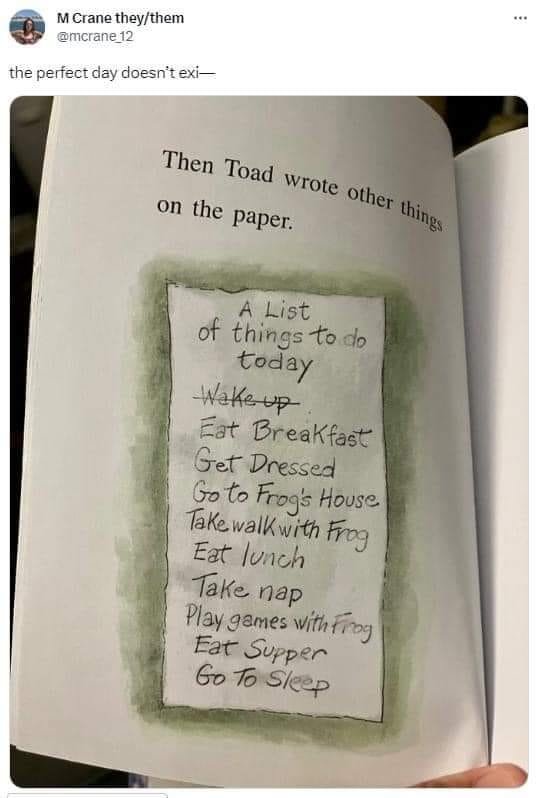 M Crane they/them
@mcrane_12
the perfect day doesn't exi—
Then Toad wrote other things
on the paper.
A List
of things to do
today
Wake up
Eat Breakfast
Get Dressed
Go to Frog's House
Take walk with Frog
Eat lunch
Take nap
Play games with Frog
Eat Supper
Go To Sleep